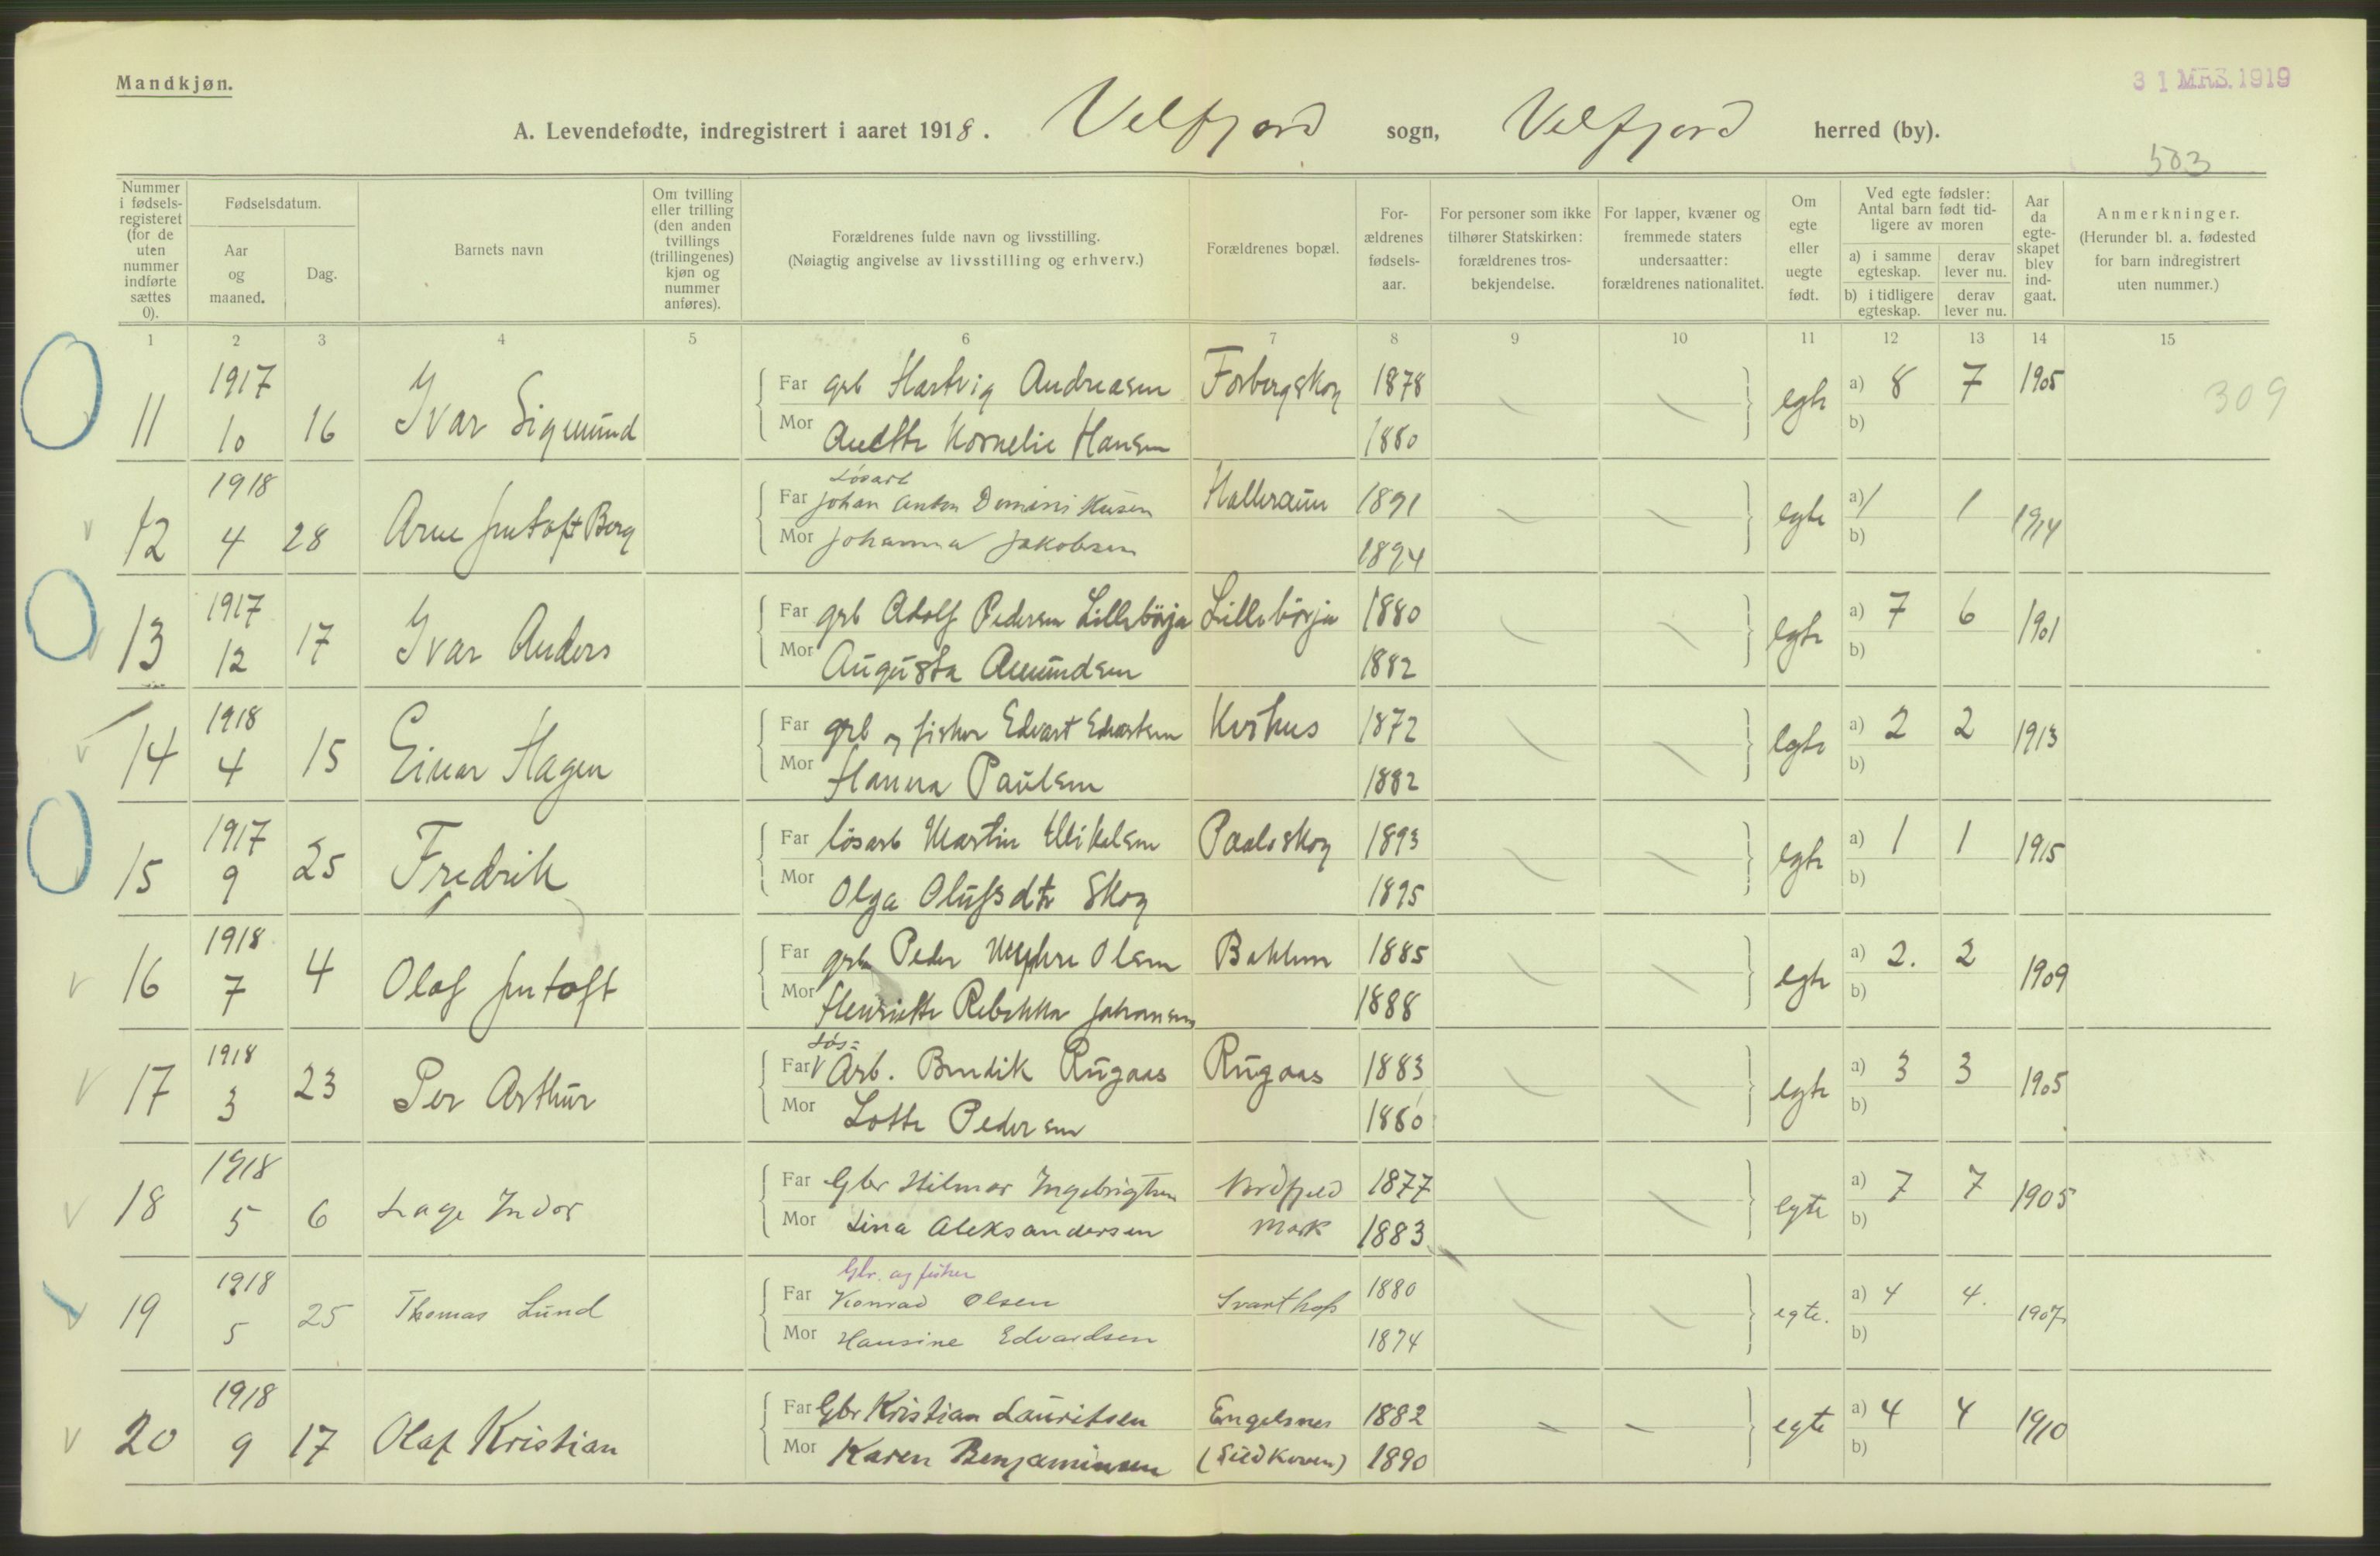 Mandkjøn.
31 MRS. 1919
A. Levendefødte, indregistrert i aaret 1918. Velfjord sogn, Velfjord herred (by).
503
Nummer i fødsels-registeret (for de uten nummer indførte sættes 0).
Fødselsdatum.
Aar og maaned.
Dag.
Barnets navn
Om tvilling eller trilling (den anden tvillings (trillingenes) kjøn og nummer anføres).
Forældrenes fulde navn og livsstilling.
(Nøiagtig angivelse av livsstilling og erhverv.)
Forældrenes bopæl.
For-ældrenes fødsels-aar.
For personer som ikke tilhører Statskirken: forældrenes tros-bekjendelse.
For lapper, kvæner og fremmede staters undersaatter: forældrenes nationalitet.
Om egte eller uegte født.
Ved egte fødsler: Antal barn født tid-ligere av moren
a) i samme egteskap. derav lever nu.
b) i tidligere egteskap. derav lever nu.
Aar da egte-skapet blev ind-gaat.
Anmerkninger.
(Herunder bl. a. fødested for barn indregistrert uten nummer.)
1 2 3 4 5 6 7 8 9 10 11 12 13 14 15
1917 Far grb Hartvig Andreasen Forbergskog 1878 a) 8 7 1905 309
11 10 16 Ivar Sigmund Mor Anette Kornelie Hansen 1880 egte b)
Løsarb
1918 Far Johan Anton Dominikusen Halleraun 1891 a) 1 1 1914
12 4 28 Arne Jentoft Berg Mor Johanna Jakobsen 1894 egte b)
1917 Far grb Adolf Pedersen Lillebörja Lillebörja 1880 a) 7 6 1901
13 12 17 Ivar Anders Mor Augusta Amundsen 1882 egte b)
1918 Far grb og fisker Edvart Edvartsen 1872 a) 2 2 1913
14 4 15 Einar Hagen Mor Hanna Paulsen 1882 egte b)
1917 Far løsarb Martin Mikalsen Paalsskog 1893 a) 1 1 1915
15 9 25 Fredrik Mor Olga Olufsdtr Skog 1895 egte b)
1918 Far grb Peder Olsen 1885 a) 2. 2 1909
16 7 4 Olaf Jentoft Mor Henriette Rebekka Johansen 1888 egte b)
Løs=
1918 Far Arb. Bendik Rugaas Rugaas 1883 a) 3 3 1905
17 3 23 Per Arthur Mor Lotte Pedersen 1880 egte b)
1918 Far Gbr Hilmar Ingebrigtsen Nordfjeld 1877 a) 7 7 1905
18 5 6 Lage Indor Mor Lina Aleksandersen Mark 1883 egte b)
Gbr. og fisker
1918 Far Konrad Olsen Svarthop 1880 a) 4 4. 1907
19 5 25 Thomas Lund Mor Hansine Edvardsen 1874 egte. b)
1918 Far Gbr Kristian Lauritsen Engelsnes 1882 a) 4 4 1910
20 9 17 Olaf Kristian Mor Karen Benjaminsen 1890 egte b)